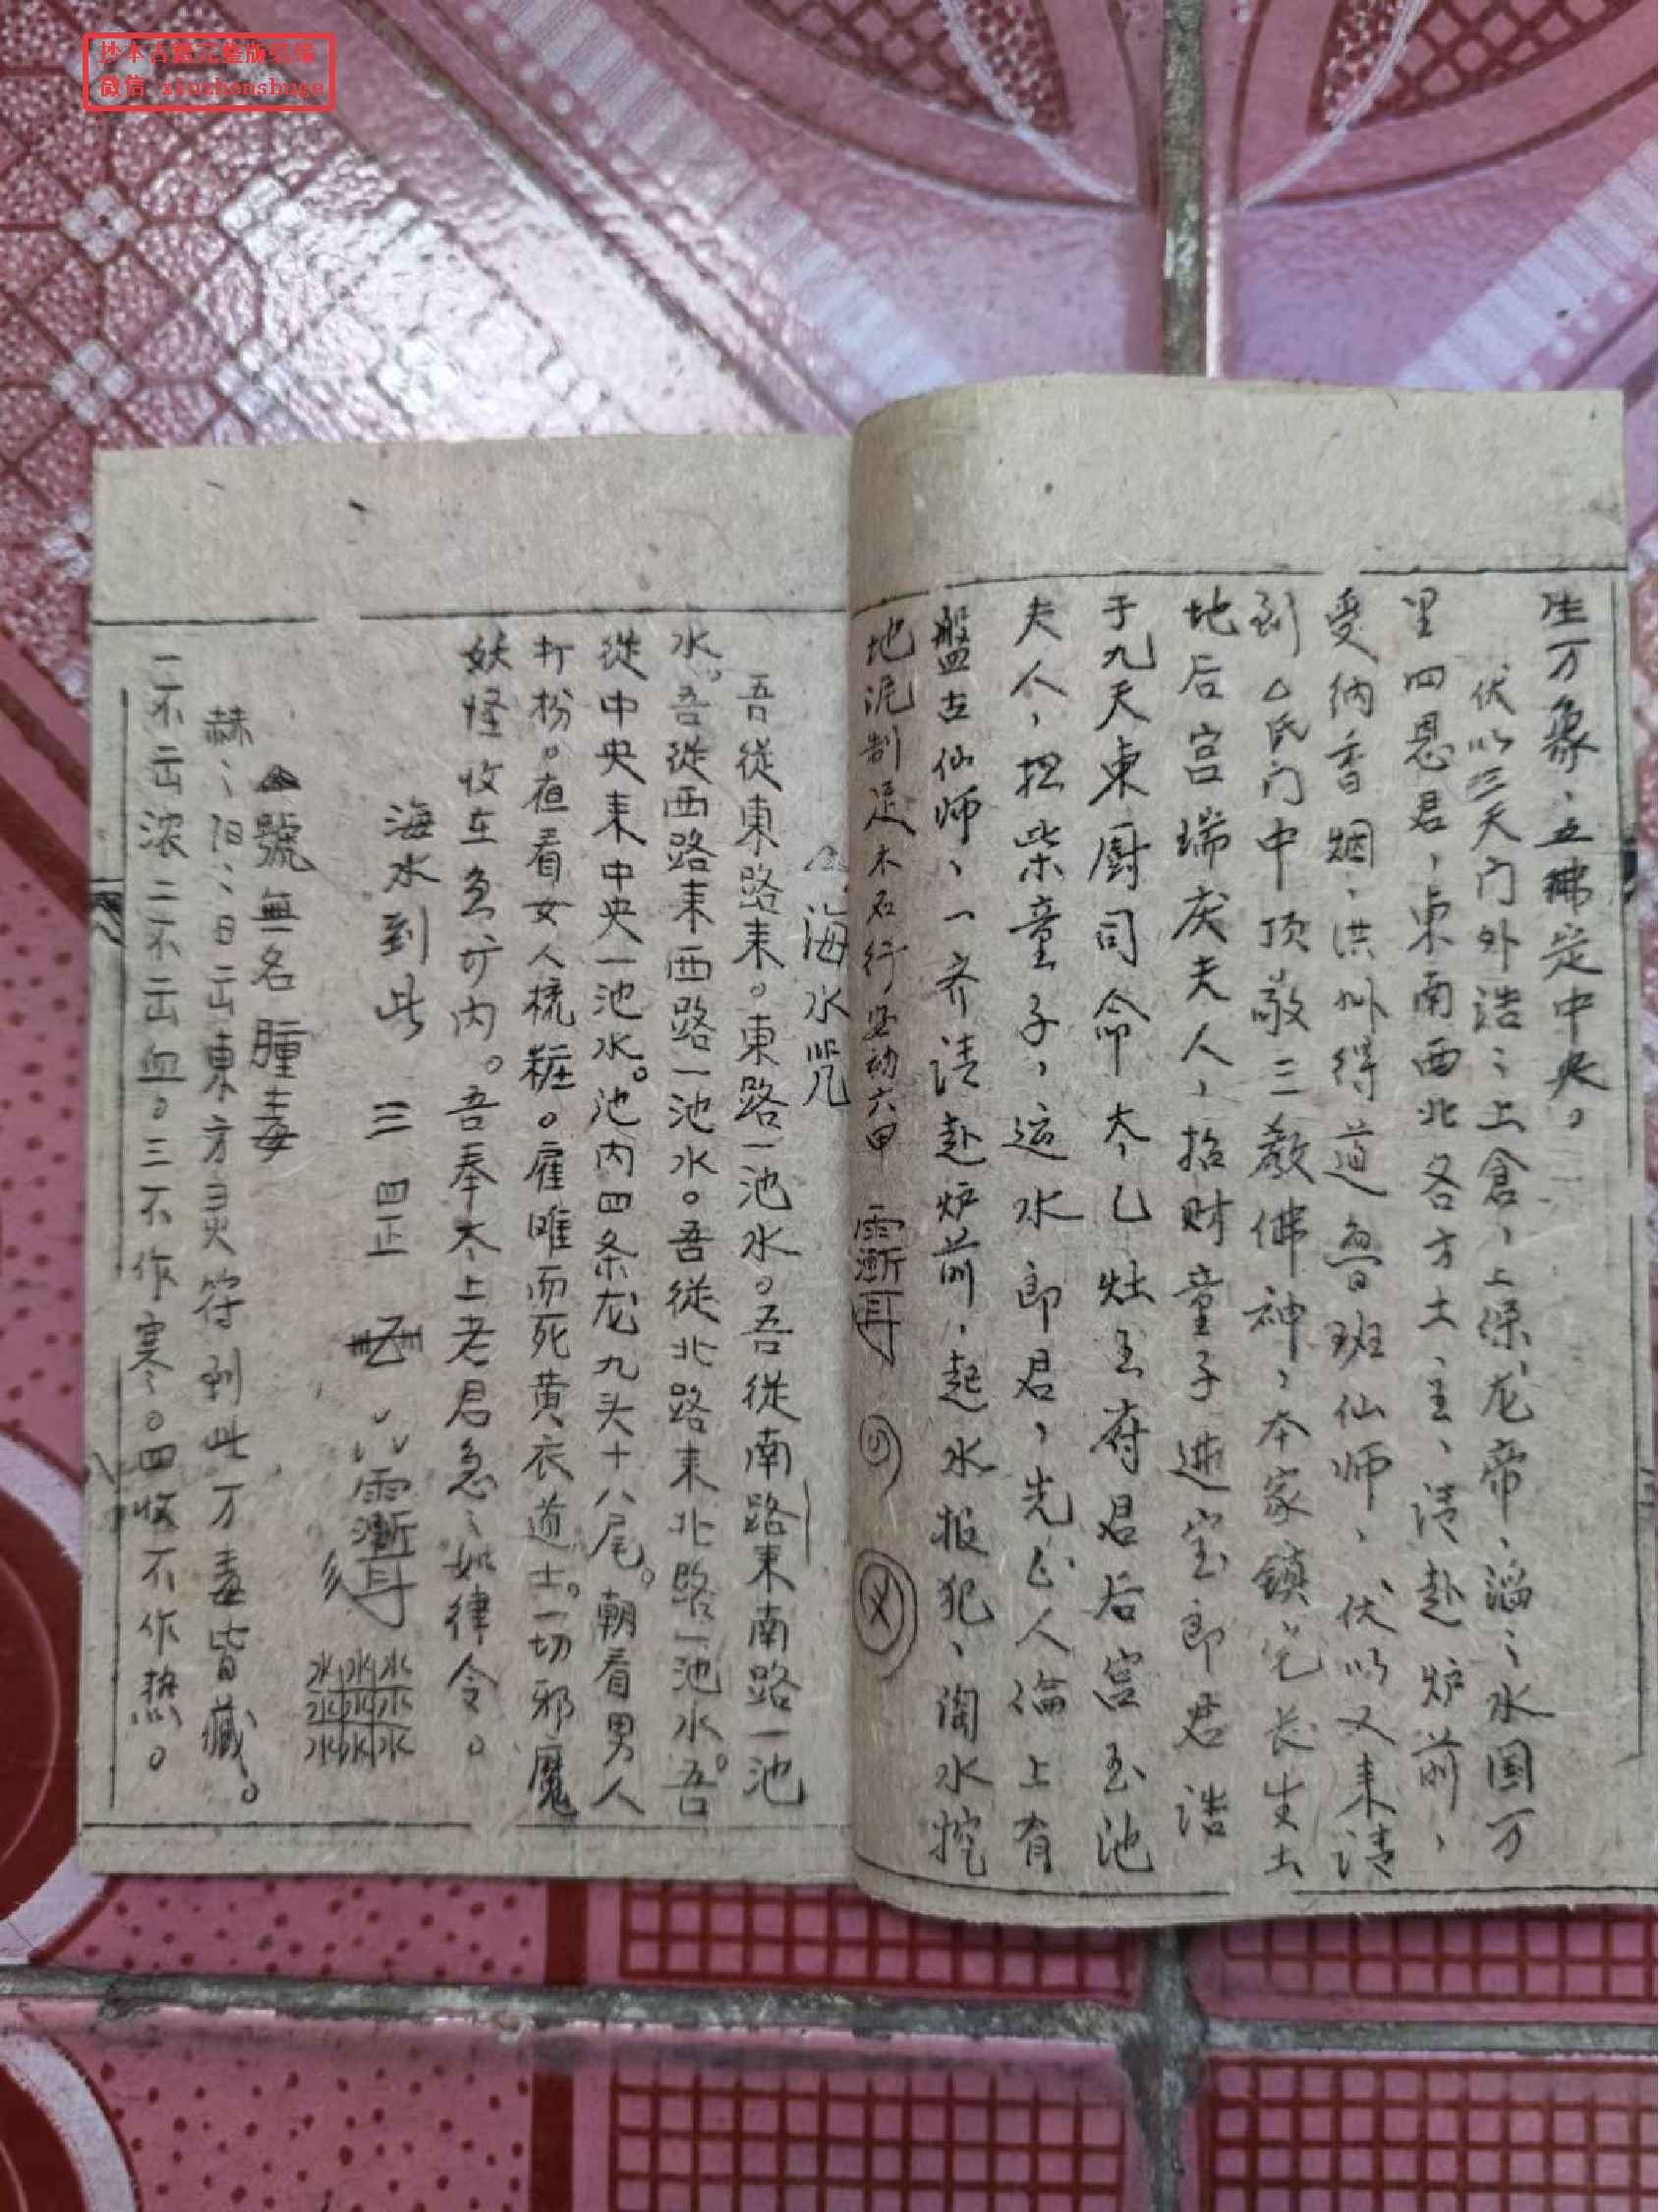 抄本古籍完整版结缘
微信 xiuzhenshuge
生万象、五拂定中央。
伏以三天门外浩〻上倉，上保龙帝、滔〻水国万
里四恩君，東南西北各方土主、请赴炉前，
受纳香烟、洪州得道魯班仙师、伏以又来请
到△氏门中顶敬三教佛神，本家鎮宅长生土
地后宫瑞庆夫人，招财童子进宝郎君 浩
于九天東厨司命太乙灶王府君后宫玉池
夫人，担柴童子，运水郎君，先 人倫上有
盤古仙师、一齐请赴炉前、起水报犯、淘水挖
地泥制足木石行 动六甲
海水咒
吾從東路来。東路一池水。吾從南路来南路一池
水。吾從西路来西路一池水。吾從北路来北路一池水。吾
從中央来中央一池水。池内四条龙九头十八尾。朝看男人
打扮。夜看女人梳粧。雇 而死黄衣道士。一切邪魔
妖怪收在 内。吾奉太上老君急〻如律令。
海水到此 三 四正
水水水
水水水
水水水
號無名腫毒
赫〻阳〻日出東方 灵符到此万毒皆藏。
一不出浓二不出血。三不作寒。四 不作热。